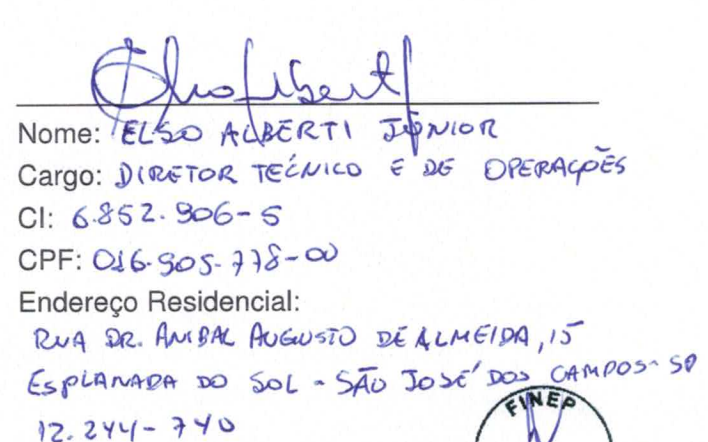 Elso Alberti
Nome: ELSO ALBERTI JÚNIOR
Cargo: DIRETOR TECÉNICO E DE OPERAÇÕES
CI: 6.852.906-5
CPF: 016.905.778-00
Endereço Residencial:
RUA DR. ANIBAL AUGUSTO DE ALMEIDA, 15
ESPLANADA DO SOL - SÃO JOSÉ DOS CAMPOS - SP
12.244-740
FINEP